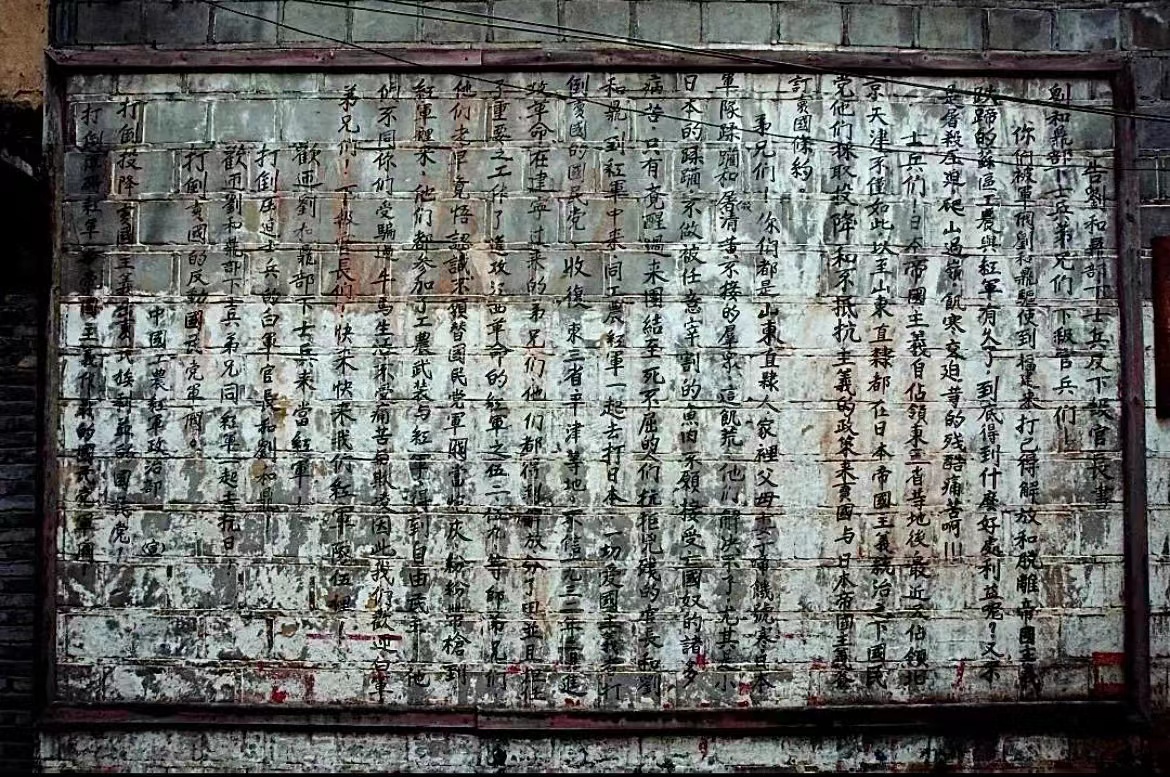 告劉和鼎部下士兵及下級官長書
劉和鼎部下士兵弟兄們下級官兵們！
你們被軍閥劉和鼎驅使到福建來打已得解放和脫離帝国主義
跌蹄的蘇區工農與紅軍有久了到底得到什麼好處利益呢？又不
是屠殺压迫爬山過嶺飢寒交迫等的残酷痛苦啊！！
士兵们！日本帝國主義自佔領東三省等地後最近又佔領北
京天津不僅如此以至山東直隸都在日本帝國主義統治之下國民
党他们採取投降和不抵抗主義的政策来賣國与日本帝国主義簽
訂賣國條約。
弟兄们！你们都是山東直隸人家裡父母妻子啼餓號寒日本
軍隊蹂躪和屠清黄不接的 這飢荒他们解决不了尤其是小
日本的蹂躪不做被任意宰割的魚肉不願接受亡國奴的諸多
痛苦．只有覚醒過来團結至死不屈的们抗拒兇残的官長和劉
和鼎到紅軍中来同工農紅軍一起去打日本一切愛國 打
倒賣國的國民党收復東三省平津等地不信一九三二年 進
攻革命在建寧过来的弟兄们他们都得到解放分了田並且担任
了重要之工作了進攻 革命的紅軍之伍二伍九等師弟兄们
他们老早覚悟認識不願替國民党軍閥當炮灰紛紛带槍到
紅軍裡来．他们都参加了工農武装与紅軍得到自由民主 他
们不同你们受騙過牛马生活不受痛苦 因此我们歡迎白軍
弟兄们！下級官長们！快来快来我们紅軍隊伍裡！
歡迎劉和鼎部下士兵来當紅軍
打倒压迫士兵的白軍官長和劉和鼎
歡迎劉和鼎部下士兵弟兄同紅軍一起去抗日！
打倒賣國的反動國民党軍閥。
中國工農紅軍政治部（宣）
打倒投降賣國主義出賣民族利益的國
打倒 紅軍 帝国主義作 的國民党軍閥